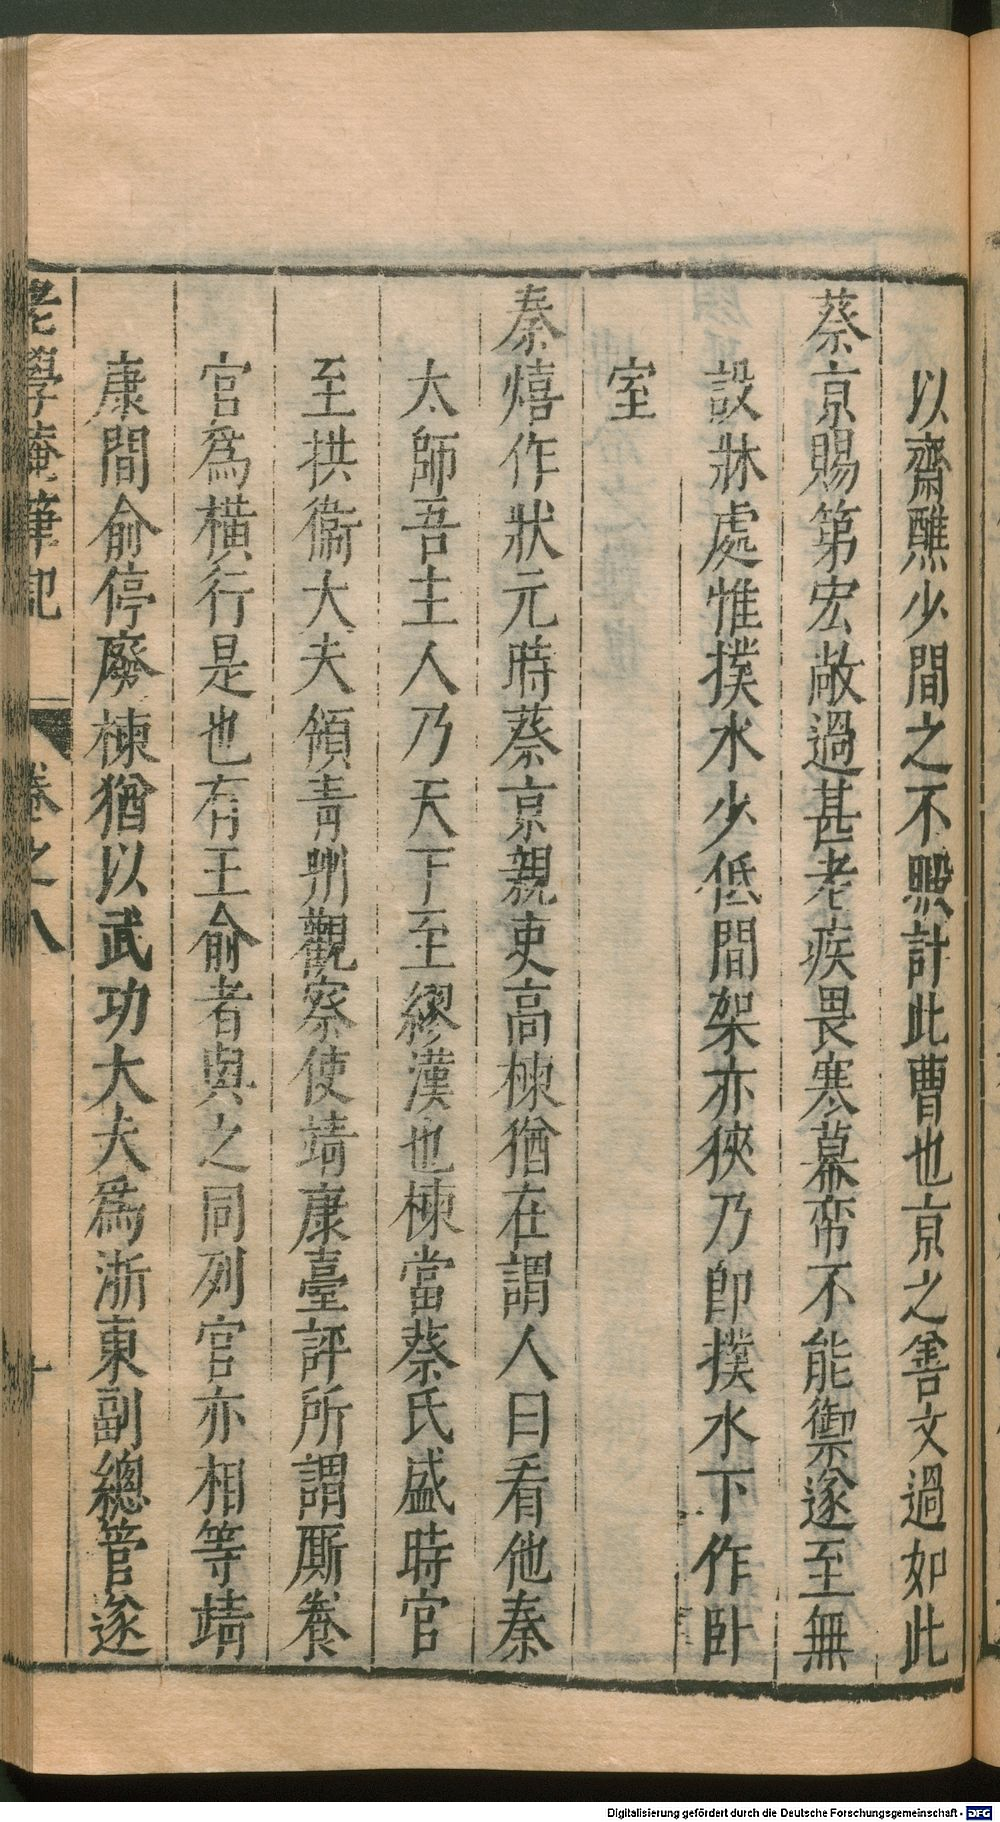 以齋醮少間之不暇計此曹也京之善文過如此
蔡京賜第宏敞過甚老疾畏寒幕帟不能禦遂至無
設牀處惟撲水少低間架亦狹乃卽撲水下作臥
室
秦熺作狀元時蔡京親吏高楝猶在謂人曰看他秦
太師吾主人乃天下至繆漢也楝當蔡氏盛時官
至拱衞大夫領青州觀察使靖康臺評所謂厮養
官爲橫行是也有王俞者與之同列官亦相等靖
康間俞停廢楝猶以武功大夫爲浙東副總管遂
老學庵筆記 卷之八 十
Digitalisierung gefördert durch die Deutsche Forschungsgemeinschaft - DFG